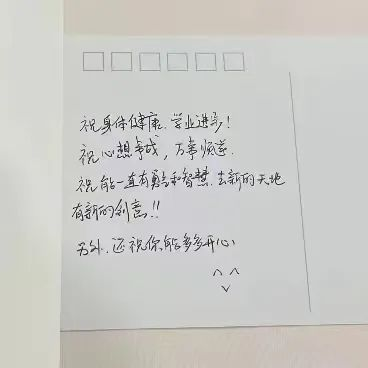 祝身体健康、学业进步!
祝心想事成，万事顺遂.
祝能一直有勇气和智慧.去新的天地
有新的创意!!
另外.还祝你能多多开心